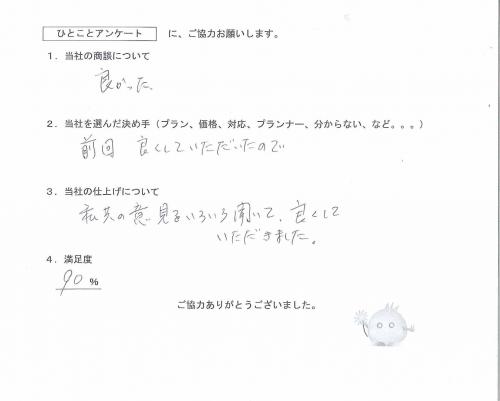 ひとことアンケート に、ご協力お願いします。
1．当社の商談について
良かった
2．当社を選んだ決め手（プラン、価格、対応、プランナー、分からない、など。。。）
前回 良くしていただいたので
3．当社の仕上げについて
私共の意見をいろいろ聞いて、良くして
いただきました。
4．満足度
90 %
ご協力ありがとうございました。